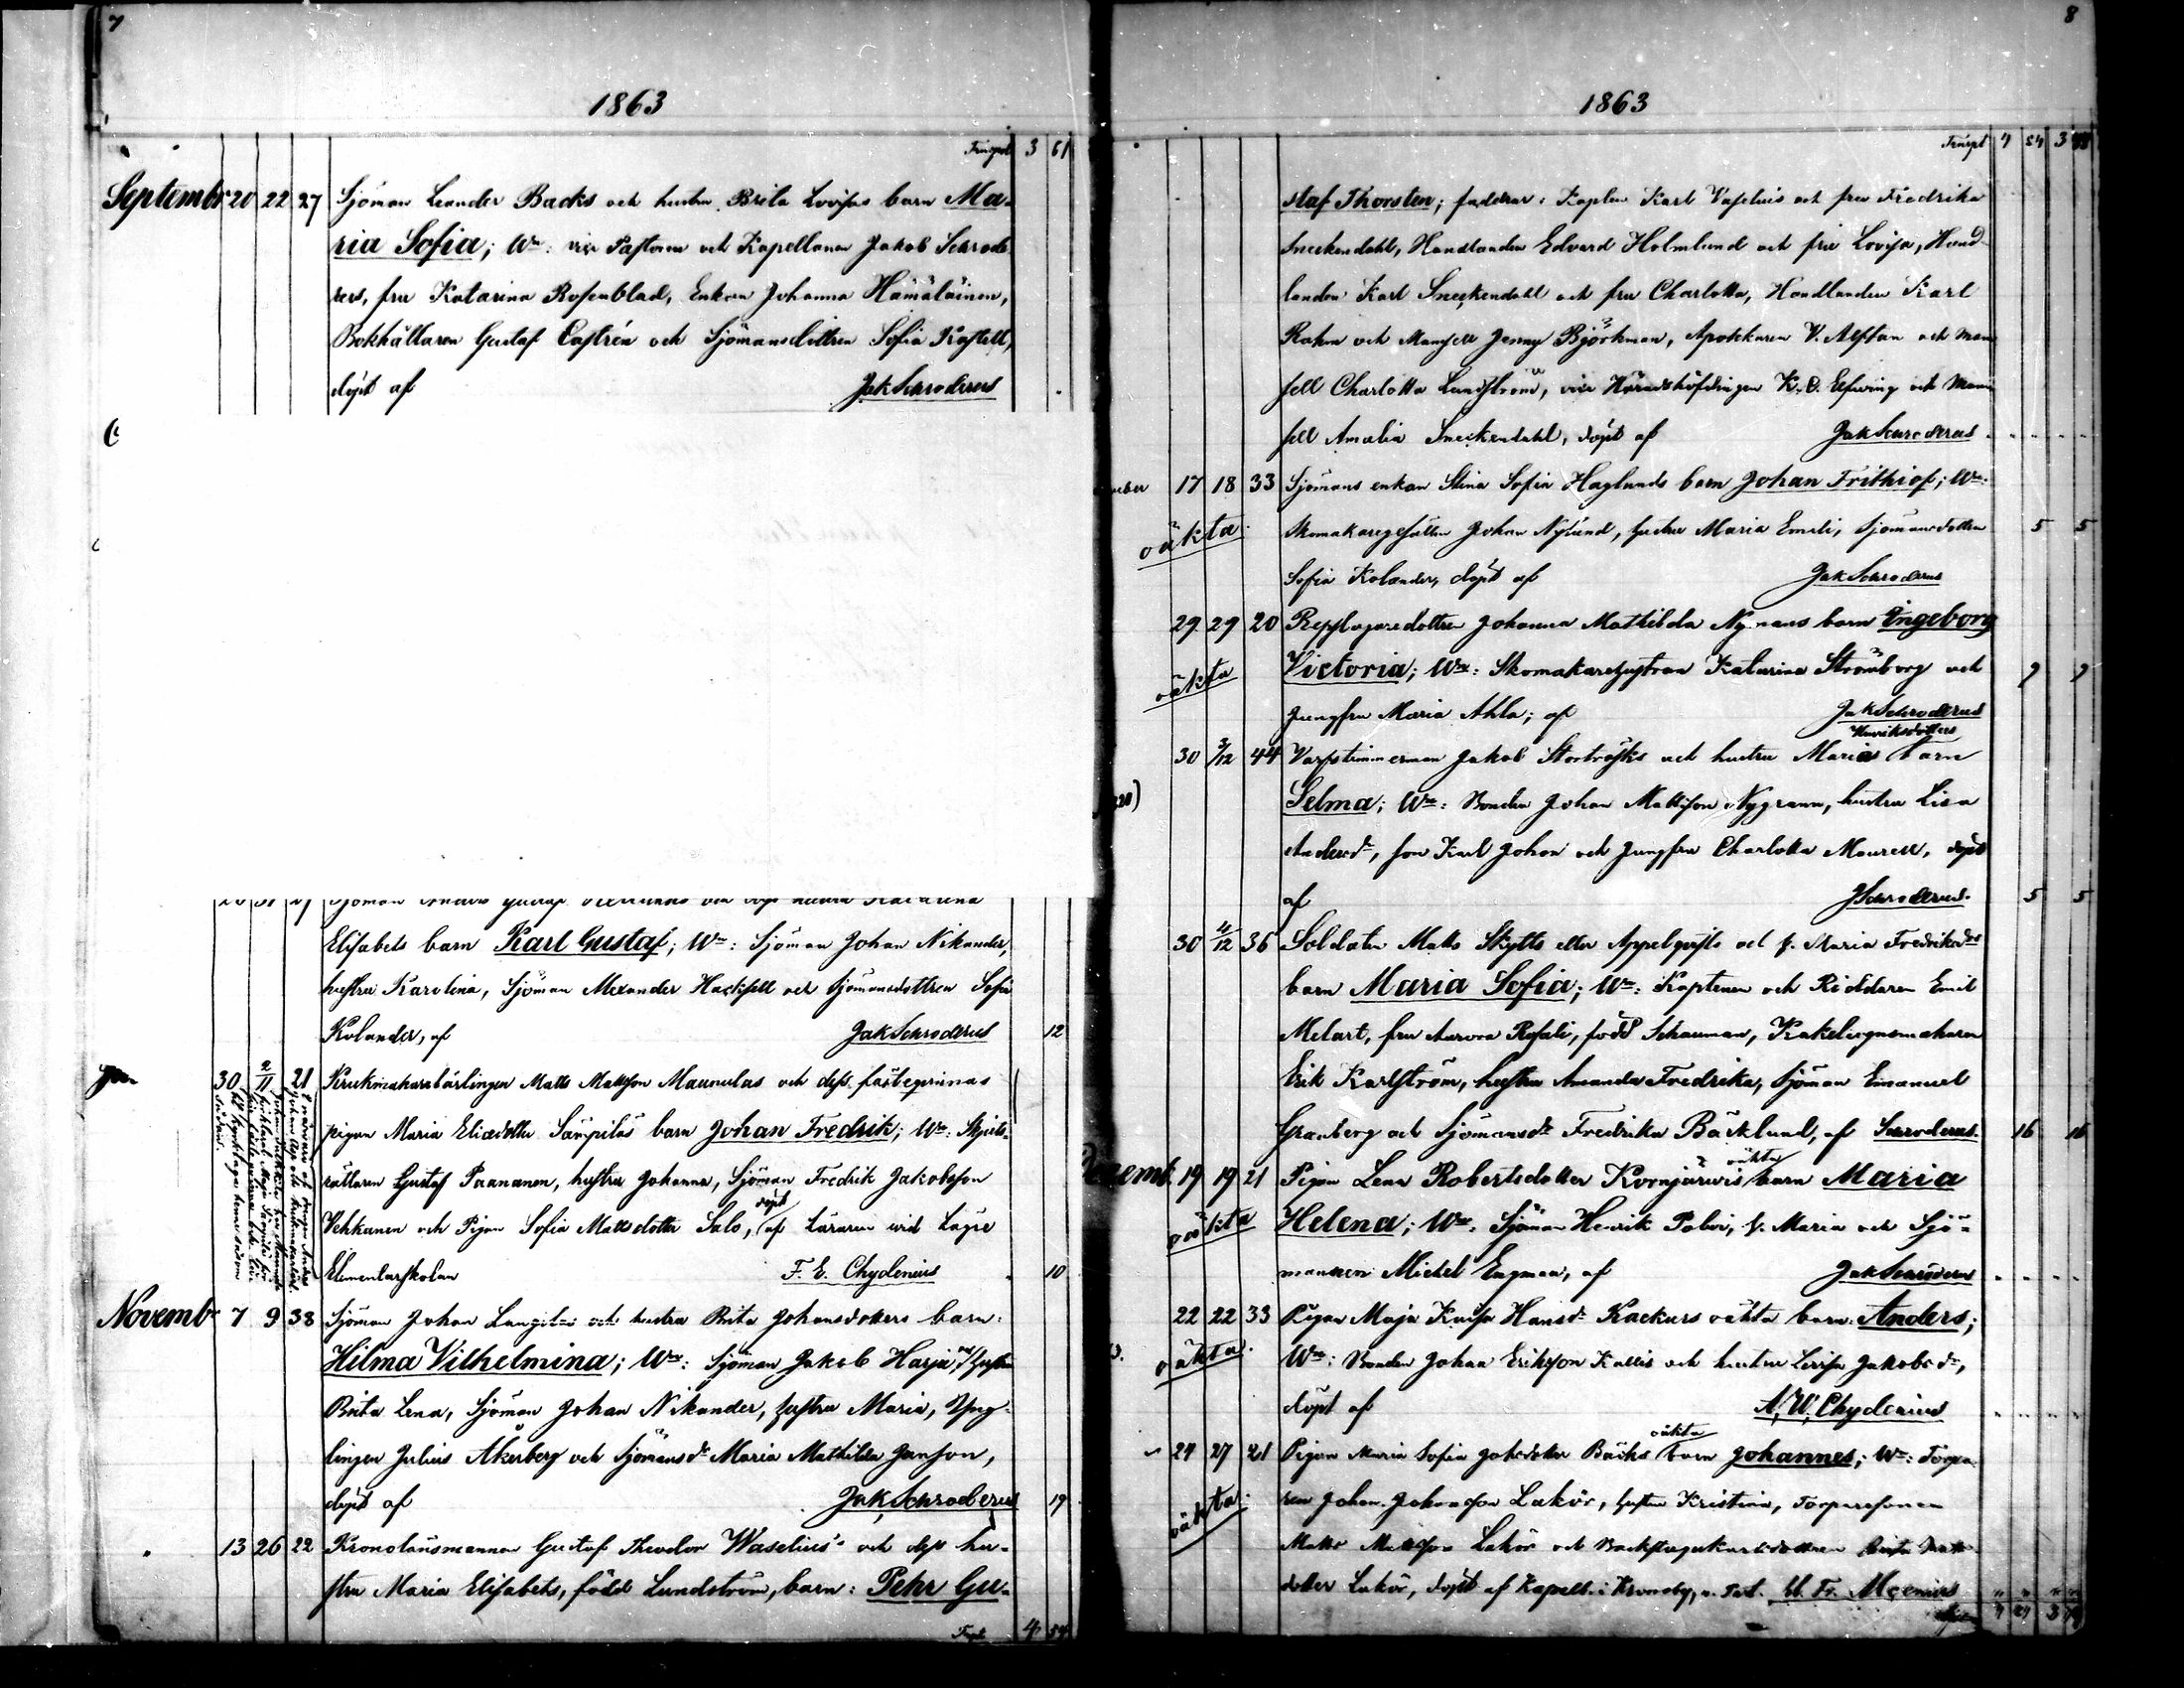 7
1863
Transpt 3 61
September 20 22 27 Sjöman Leander Backs och hustru Brita Lovisas barn Ma-
ria Sofia; Wn: vice Pastorn och Kapellanen Jakob Schrode-
rus, fru Katarina Rosenblad, Enkan Johanna Hämäläinen,
Bokhållaren Gustaf Castrén och Sjömansdottren Sofia Kastell,
döpt af Jak Schroderus
Elisabets barn Karl Gustaf; Wn: Sjöman Johan Nikander,
hustru Karolina, Sjöman Alexander Hacksell och Sjömansdottren Sofia
Kolander, af Jak Schroderus 12
30 2/11 21 Krukmakarelärlingen Matts Mattsson Maunulas och dess fästeqvinnas
pigan Maria Eliædotter Sämpiläs barn Johan Fredrik; Wn:
Gustaf Paananen, hustru Johanna, Sjöman Fredrik Jakobsson
Vehkanen och Pigan Sofia Mattsdotter Salo, döpt af Läraren wid Lägre
Elementarskolan F. E. Chydenius 10
Novembr 7 9 38 Sjöman Johan och hustru Brita Johansdotters barn:
Hilma Vilhelmina; Wn: Sjöman Jakob Harju, och hustru
Brita Lena, Sjöman Johan Nikander, hustru Maria, Yng-
lingen Julius Åkerberg och Sjömansdr Maria Mathilda Janson,
döpt af Jak Schroderus 19
13 26 22 Kronolänsmannen Gustaf Theodor Waselius's och dess hu-
stru Maria Elisabets, född Lundström, barn: Pehr Gu-
Transpt 4 84
8
1863
Transpt 4 84 3
staf Thorsten; faddrar: Kaplan Karl Vaselius och fru Fredrika
Sneckendahl, Handlanden Edvard Holmlund och fru Lovisa, Hand-
landen Karl Sneckendahl och fru Charlotta, Handlanden Karl
Rahm och Mamsell Jenny Björkman, Apothekaren V. Alftan och Mam-
sell Charlotta Lundström, vice Häradshöfdingen K. O. Elfving och Mam-
sell Amalia Sneckendahl, döpt af Jak Schroderus
17 18 33 Sjömans enkan Stina Sofia Haglunds barn Johan Frithiof; Wn:
oäkta Skomakaregesällen Johan Nylund, hustru Maria Emeli, Sjömansdottren 5 5
Sofia Kolander, döpt af Jak Schroderus
29 29 20 Repslagaredottren Johanna Mathilda Nymans barn Ingeborg
oäkta Victoria; Wn: Skomakarehustrun Katarina Strömborg och 9 9
Jungfru Maria Ahla; af Jak Schroderus
Henriksdotters
30 3/12 44 Varfstimmerman Jakob Storträsks och hustru Marias barn
Selma; Wn: Bonden Johan Mattsson Nygrann, hustru Lisa
Andersdr, son Karl Johan och Jungfru Charlotta Maurell, döpt
af J Schroderus. 5 5
30 4/12 36 Soldaten Matts Skytts eller Appelqvists och h. Maria Fredriksdrs
barn Maria Sofia; Wn: Kaptenen och Riddaren Emil
Melart, fru Aurora Rosali, född Schauman, Kakelugnsmakaren
Erik Karlström, hustru Amanda Fredrika, Sjöman Emanuel
Granberg och Sjömansdr Fredrika Bäcklund, af Schroderus. 16 16
Decemb. 19 19 21 Pigan Lena Robertsdotter Kornjärwis oäkta barn Maria
oäkta Helena; Wn: Sjöman Henrik Palvi, h. Maria och Sjö-
mannen Michel Engman, af Jak Schroderus
22 22 33 Pigan Maja Kaisa Hansdr Kackurs oäkta barn: Anders;
oäkta Wn: Bonden Johan Eriksson Kallis och hustru Lovisa Jakobsdr,
döpt af A. W. Chydenius
24 27 21 Pigan Maria Sofia Johsdotter Backs oäkta barn Johannes; Wn: Torpa-
oäkta ren Johan Johansson Lakör, hustru Kristina, Torparesonen
Matts Mattsson Lakör och Mats-
dotter Lakör, döpt af Kapell. i Kronoby, v. Past.